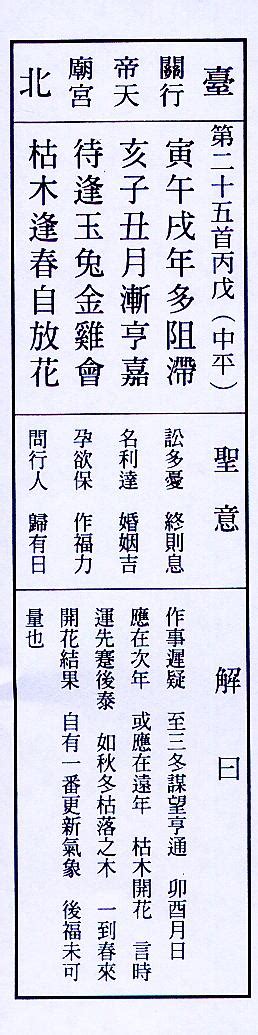 臺
關行
帝天
廟宮
北
第二十五首丙戊(中平)
寅午戌年多阻滯
亥子丑月漸亨嘉
待逢玉兔金雞會
枯木逢春自放花
聖意
訟多憂 終則息
名利達 婚姻吉
孕欲保 作福力
問行人 歸有日
解曰
作事遲疑 至三冬謀望亨通 卯酉月日
應在次年 或應在遠年 枯木開花 言時
運先蹇後泰 如秋冬枯落之木 一到春來
開花結果 自有一番更新氣象 後福未可
量也